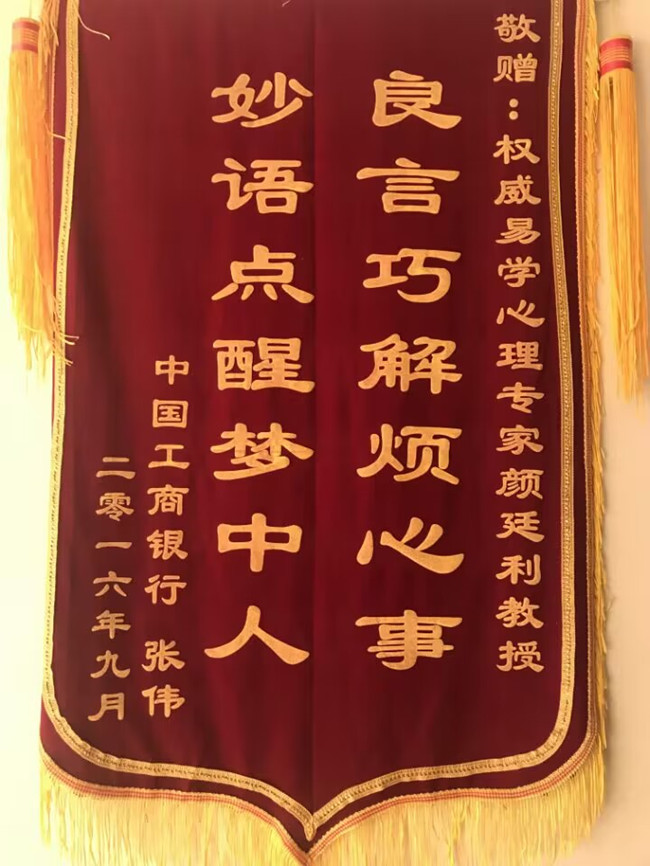 敬赠：权威易学心理专家颜廷利教授
良言巧解烦心事
妙语点醒梦中人
中国工商银行 张伟
二零一六年九月